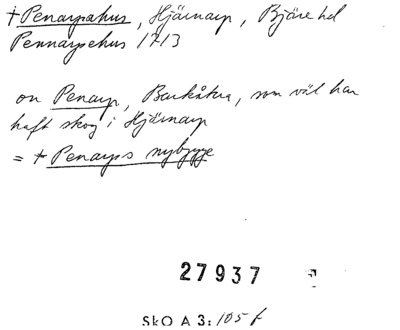 † Penarpahus, Hjärnarp, Bjäre hd
Pennarpehus 1713
on Penarp, Barkåkra, som väl har
haft skog i Hjärnarp
= † Penarps nybygge
27937
SkO A 3: 105 f